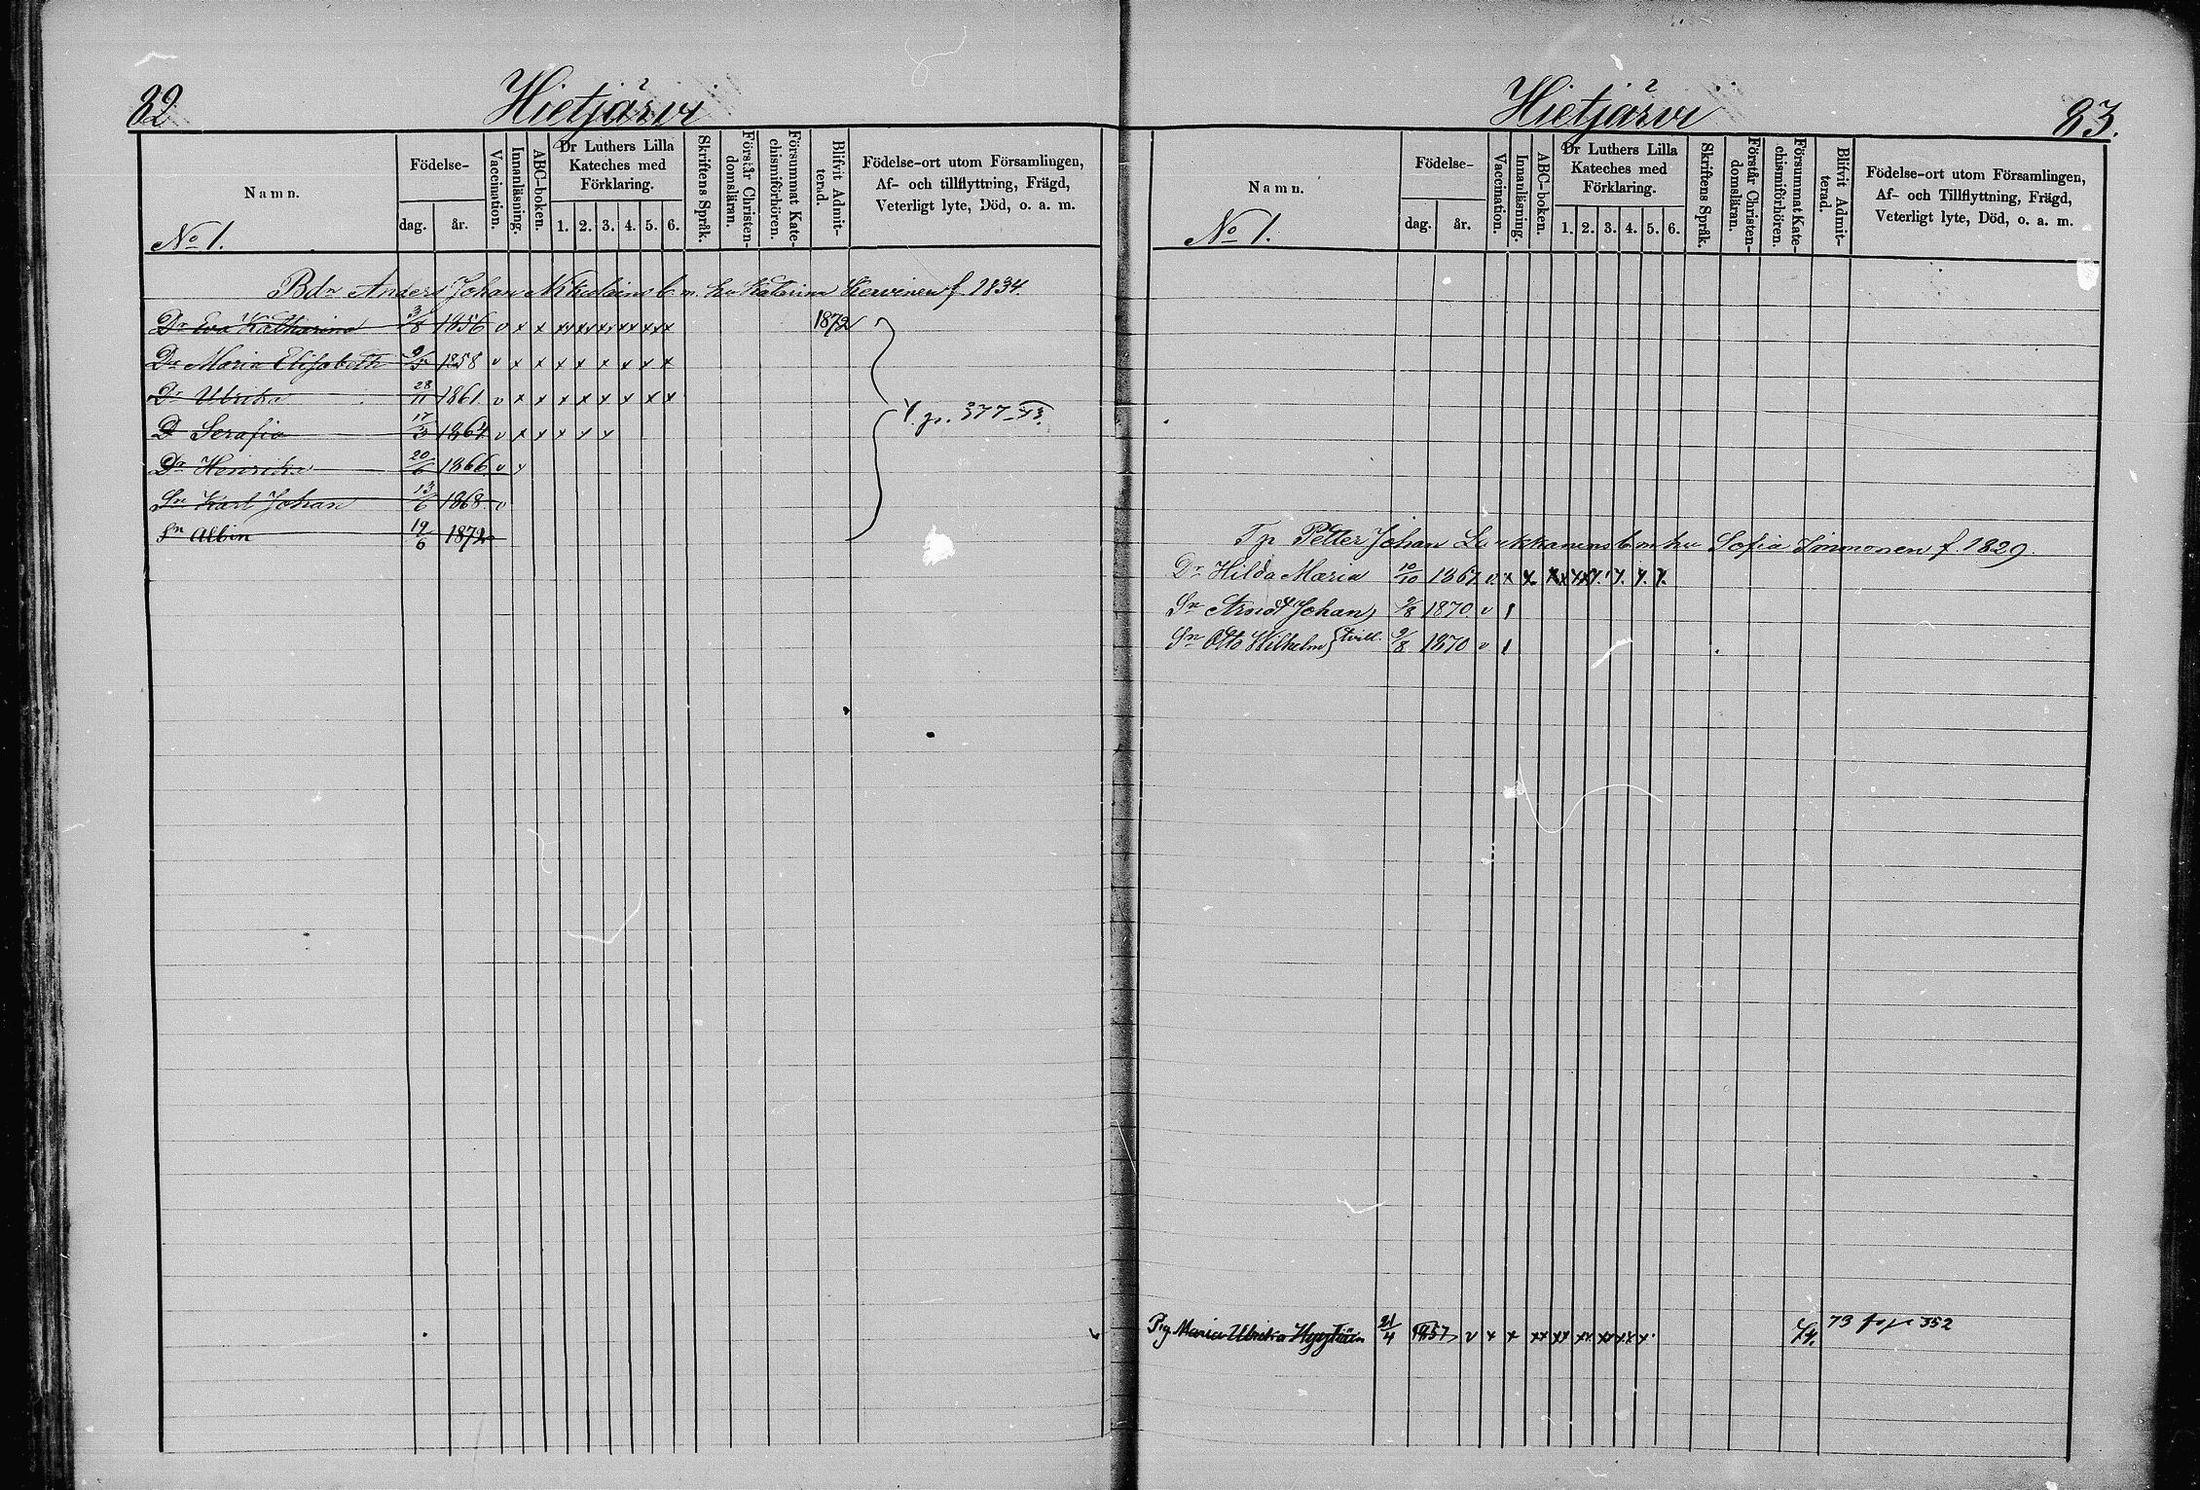 82
Hietjärvi
Namn.
Födelse-
dag.
år.
Vaccination.
Innanläsning.
ABC-boken.
Dr Luthers Lilla
Kateches med
Förklaring.
1. 2. 3. 4. 5. 6.
Skriftens Språk.
Förstår Christen-
domsläran.
Försummat Kate-
chismiförhören.
Blifvit Admit-
terad.
Födelse-ort utom Församlingen,
Af- och tillflyttning, Frägd,
Veterligt lyte, Död, o. a. m.
No 1.
Bdn Anders Johan Nikulains b. m. hu Katarina Kervinen f. 1834.
Dr Eva Katharina 3/8 1856 v x x xx xx xx xx xx xx 1872
Dr Maria Elisabeth 1858 v x x x x x x x x
Dr Ulrika 28/11 1861 v x x x x x x x x
D Serafia 17/3 1864 v x x x x x
fr. p. 377-73.
Dr Henrika 20/6 1866 v x
Sn Karl Johan 13/6 1868 v
Sn Albin 19/6 1872
Hietjärvi
83.
Namn.
Födelse-
dag.
år.
Vaccination.
Innanläsning.
ABC-boken.
Dr Luthers Lilla
Kateches med
Förklaring.
1. 2. 3. 4. 5. 6.
Skriftens Språk.
Förstår Christen-
domsläran.
Försummat Kate-
chismiförhören.
Blifvit Admit-
terad.
Födelse-ort utom Församlingen,
Af- och Tillflyttning, Frägd,
Veterligt lyte, Död, o. a. m.
No 1.
Tp Petter Johan Laukkanens b m hu Sofia Immonen f. 1829.
Dr Hilda Maria 10/10 1867 v x x xx xx x x x x
Sn Arndt Johan 9/8 1870 v 1
Sn Otto Wilhelm tvill. 9/8 1870 v 1
Pig. Maria Ulrika Hyytiäin 21/4 1857 v x x xx xx xx xx xx x 74. 73 fr p 352